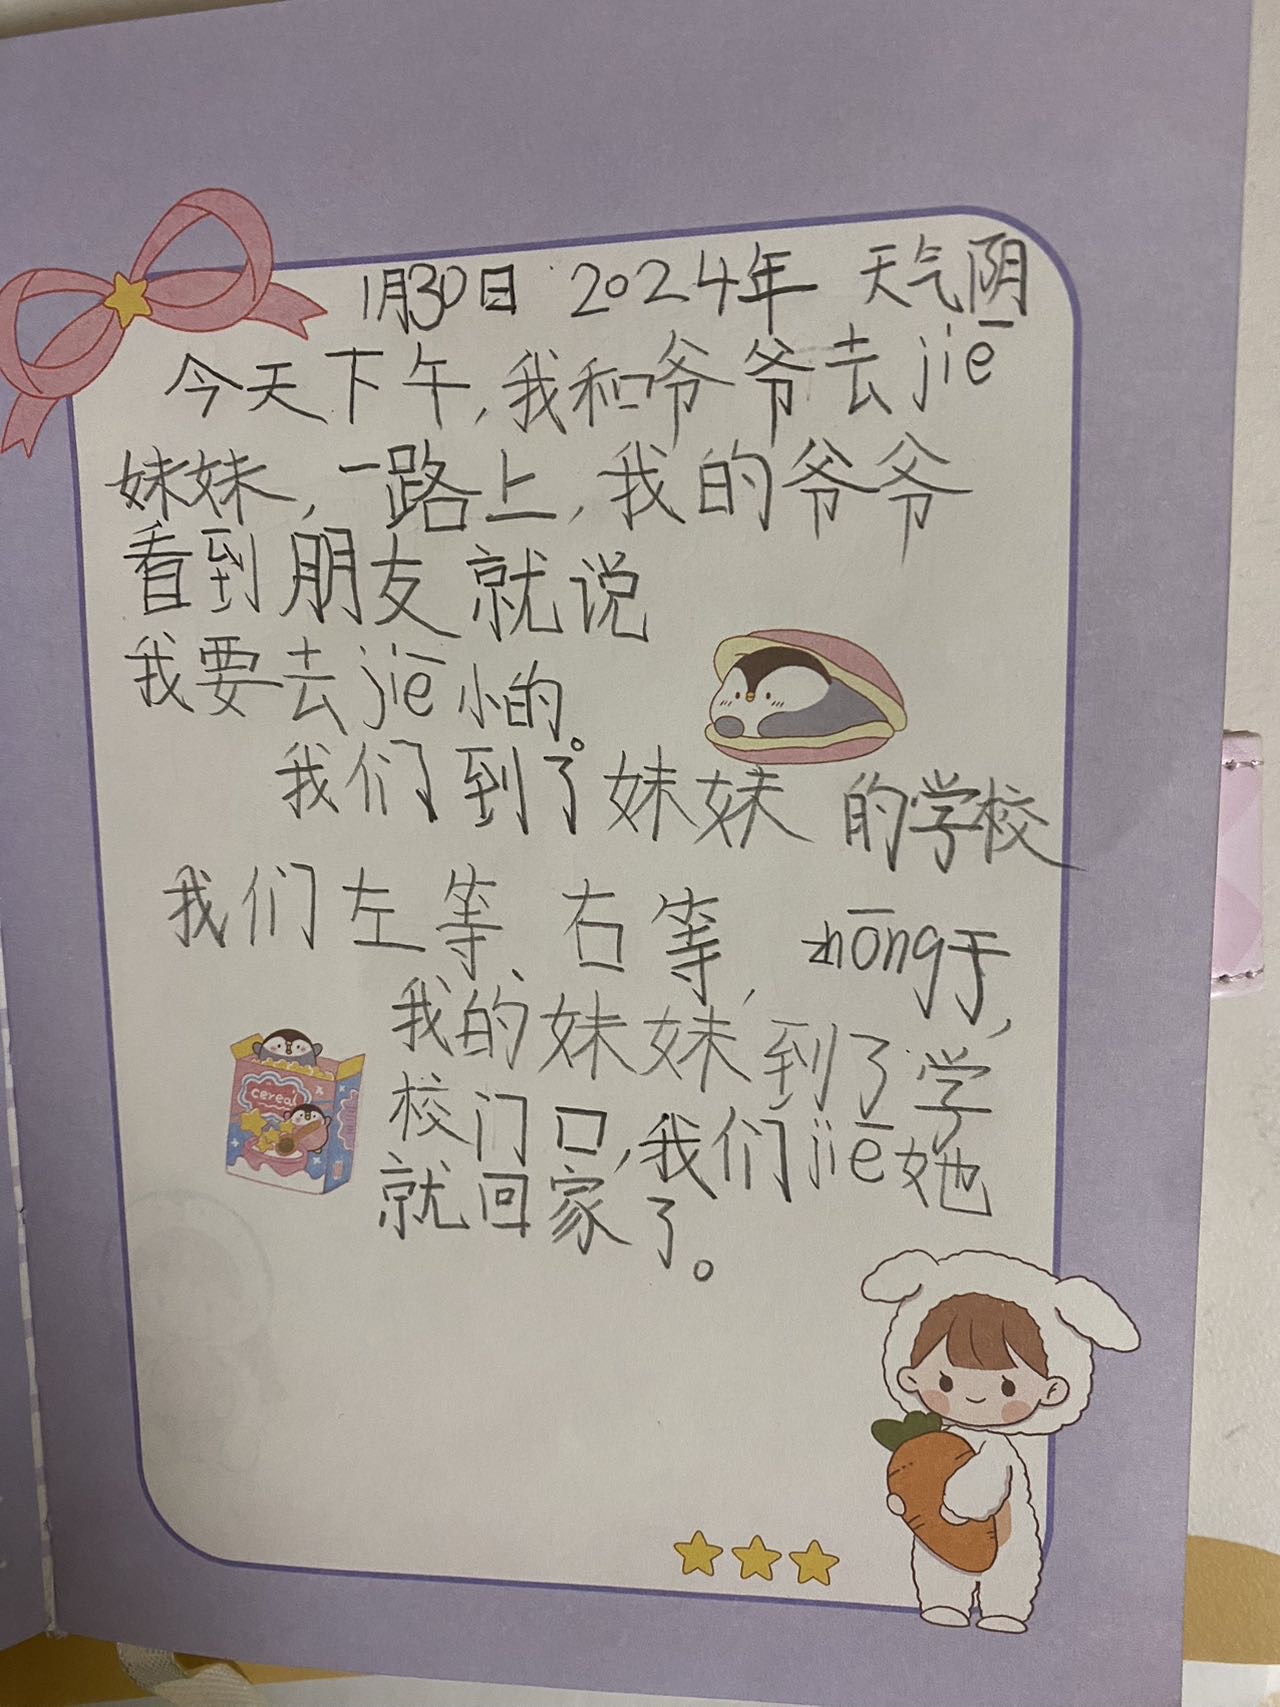 1月30日 2024年 天气阴
今天下午,我和爷爷去jiē
妹妹,一路上,我的爷爷
看到朋友就说
我要去jiē小的。
我们到了妹妹的学校
我们左等、右等,zhōng于,
我的妹妹到了学
cereal
校门口,我们jiē她
就回家了。